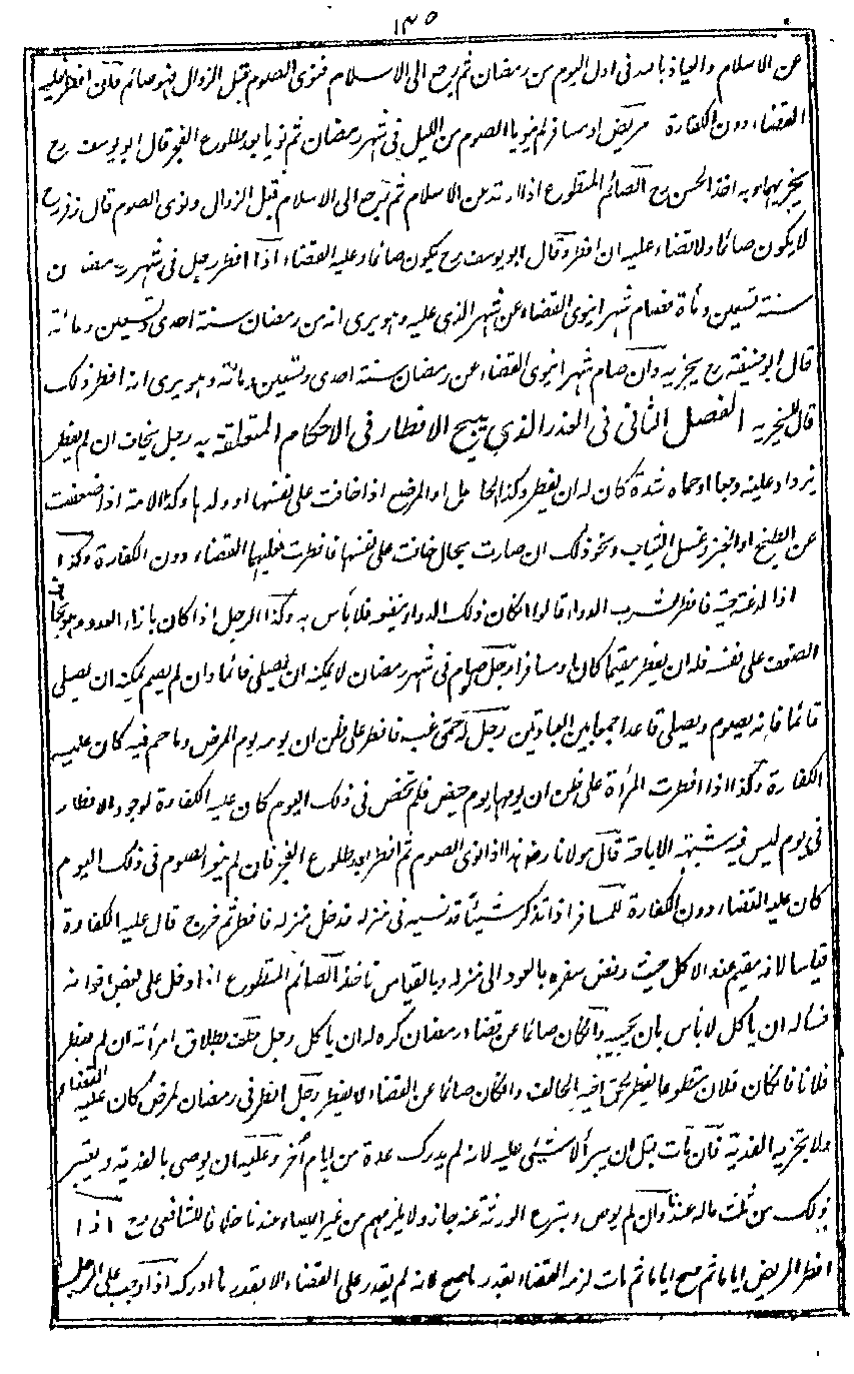 ١٣٥
عن الاسلام والعياذ بالله فى اول اليوم من رمضان ثم رجع الى الاسلام فنوى الصوم قبل الزوال فهو صائم فان افطر عليه
القضاء دون الكفارة مريض او مسافر لم ينويا الصوم من الليل فى شهر رمضان ثم نويا بعد طلوع الفجر قال ابو يوسف رح
يجزيهما وبه اخذ الحسن رح الصائم المتطوع اذا ارتد عن الاسلام ثم رجع الى الاسلام قبل الزوال ونوى الصوم قال زفر رح
لا يكون صائما ولا قضاء عليه ان افطر وقال ابو يوسف رح يكون صائما وعليه القضاء اذا افطر رجل فى شهر رمضان
سنة تسعين ومأة فصام شهرا ينوى القضاء عن الشهر الذى عليه وهو يرى انه من رمضان سنة احدى وتسعين ومائة
قال ابو حنيفة رح يجزيه وان صام شهرا ينوى القضاء عن رمضان سنة احدى وتسعين ومائة وهو يرى انه افطر ذلك
قال لا يجزيه الفصل الثانى فى العذر الذي يبيح الافطار فى الاحكام المتعلقة به رجل يخاف ان لم يفطر
يزداد عينه وجعا او حماه شدة كان له ان يفطر وكذا الحامل او المرضع اذا خافت على نفسها او ولدها وكذا الامة اذا ضعفت
عن الطبخ او الخبز وغسل الثياب ونحو ذلك ان صارت بحال خافت على نفسها فافطرت فعليها القضاء دون الكفارة وكذا
اذا لدغته حية فافطر لشرب الدواء قالوا ان كان ذلك الدواء ينفعه فلا بأس به وكذا الرجل اذا كان بازاء العدو وهو يخاف
الضعف على نفسه فله ان يفطر مقيما كان او مسافرا رجل صام فى شهر رمضان لا يمكنه ان يصلى قائما وان لم يصم يمكنه ان يصلى
قائما فانه يصوم ويصلى قاعدا جمعا بين العبادتين رجل له حمى غب فافطر على ظن ان يومه يوم المرض وما حم فيه كان عليه
الكفارة وكذا اذا افطرت المرأة على ظن ان يومها يوم حيض فلم تحض فى ذلك اليوم كان عليها الكفارة لوجود الافطار
فى يوم ليس فيه شبهة الاباحة قال مولانا رض هذا اذا نوى الصوم ثم افطر بعد طلوع الفجر فان لم ينو الصوم فى ذلك اليوم
كان عليه القضاء دون الكفارة المسافر اذا تذكر شيئا قد نسيه فى منزله فدخل منزله فافطر ثم خرج قال عليه الكفارة
قياسا لانه مقيم عند الاكل حيث رفض سفره بالعود الى منزله وبالقياس ناخذ الصائم المتطوع اذا دخل على بعض اخوانه
فسأله ان يأكل لا بأس بان يجيبه وان كان صائما عن قضاء رمضان كره له ان يأكل رجل حلف بطلاق امرأته ان لم يفطر
فلانا فان كان فلان متطوعا يفطر لحق اخيه الحالف وان كان صائما عن القضاء لا يفطر رجل افطر فى رمضان لمرض كان عليه القضاء
ولا يجزيه الفدية فان مات قبل ان يبرأ لا شيئ عليه لانه لم يدرك عدة من ايام اخر وعليه ان يوصى بالفدية ويعتبر
ذلك من ثلث ماله عندنا وان لم يوص وتبرع الورثة عنه جاز ولا يلزمهم من غير ايصاء عندنا خلافا للشافعى رح اذا
افطر المريض اياما ثم صح اياما ثم مات لزمه القضاء بقدر ما صح لانه لم يقدر على القضاء الا بقدر ما ادركه اذا وجب على الرجل